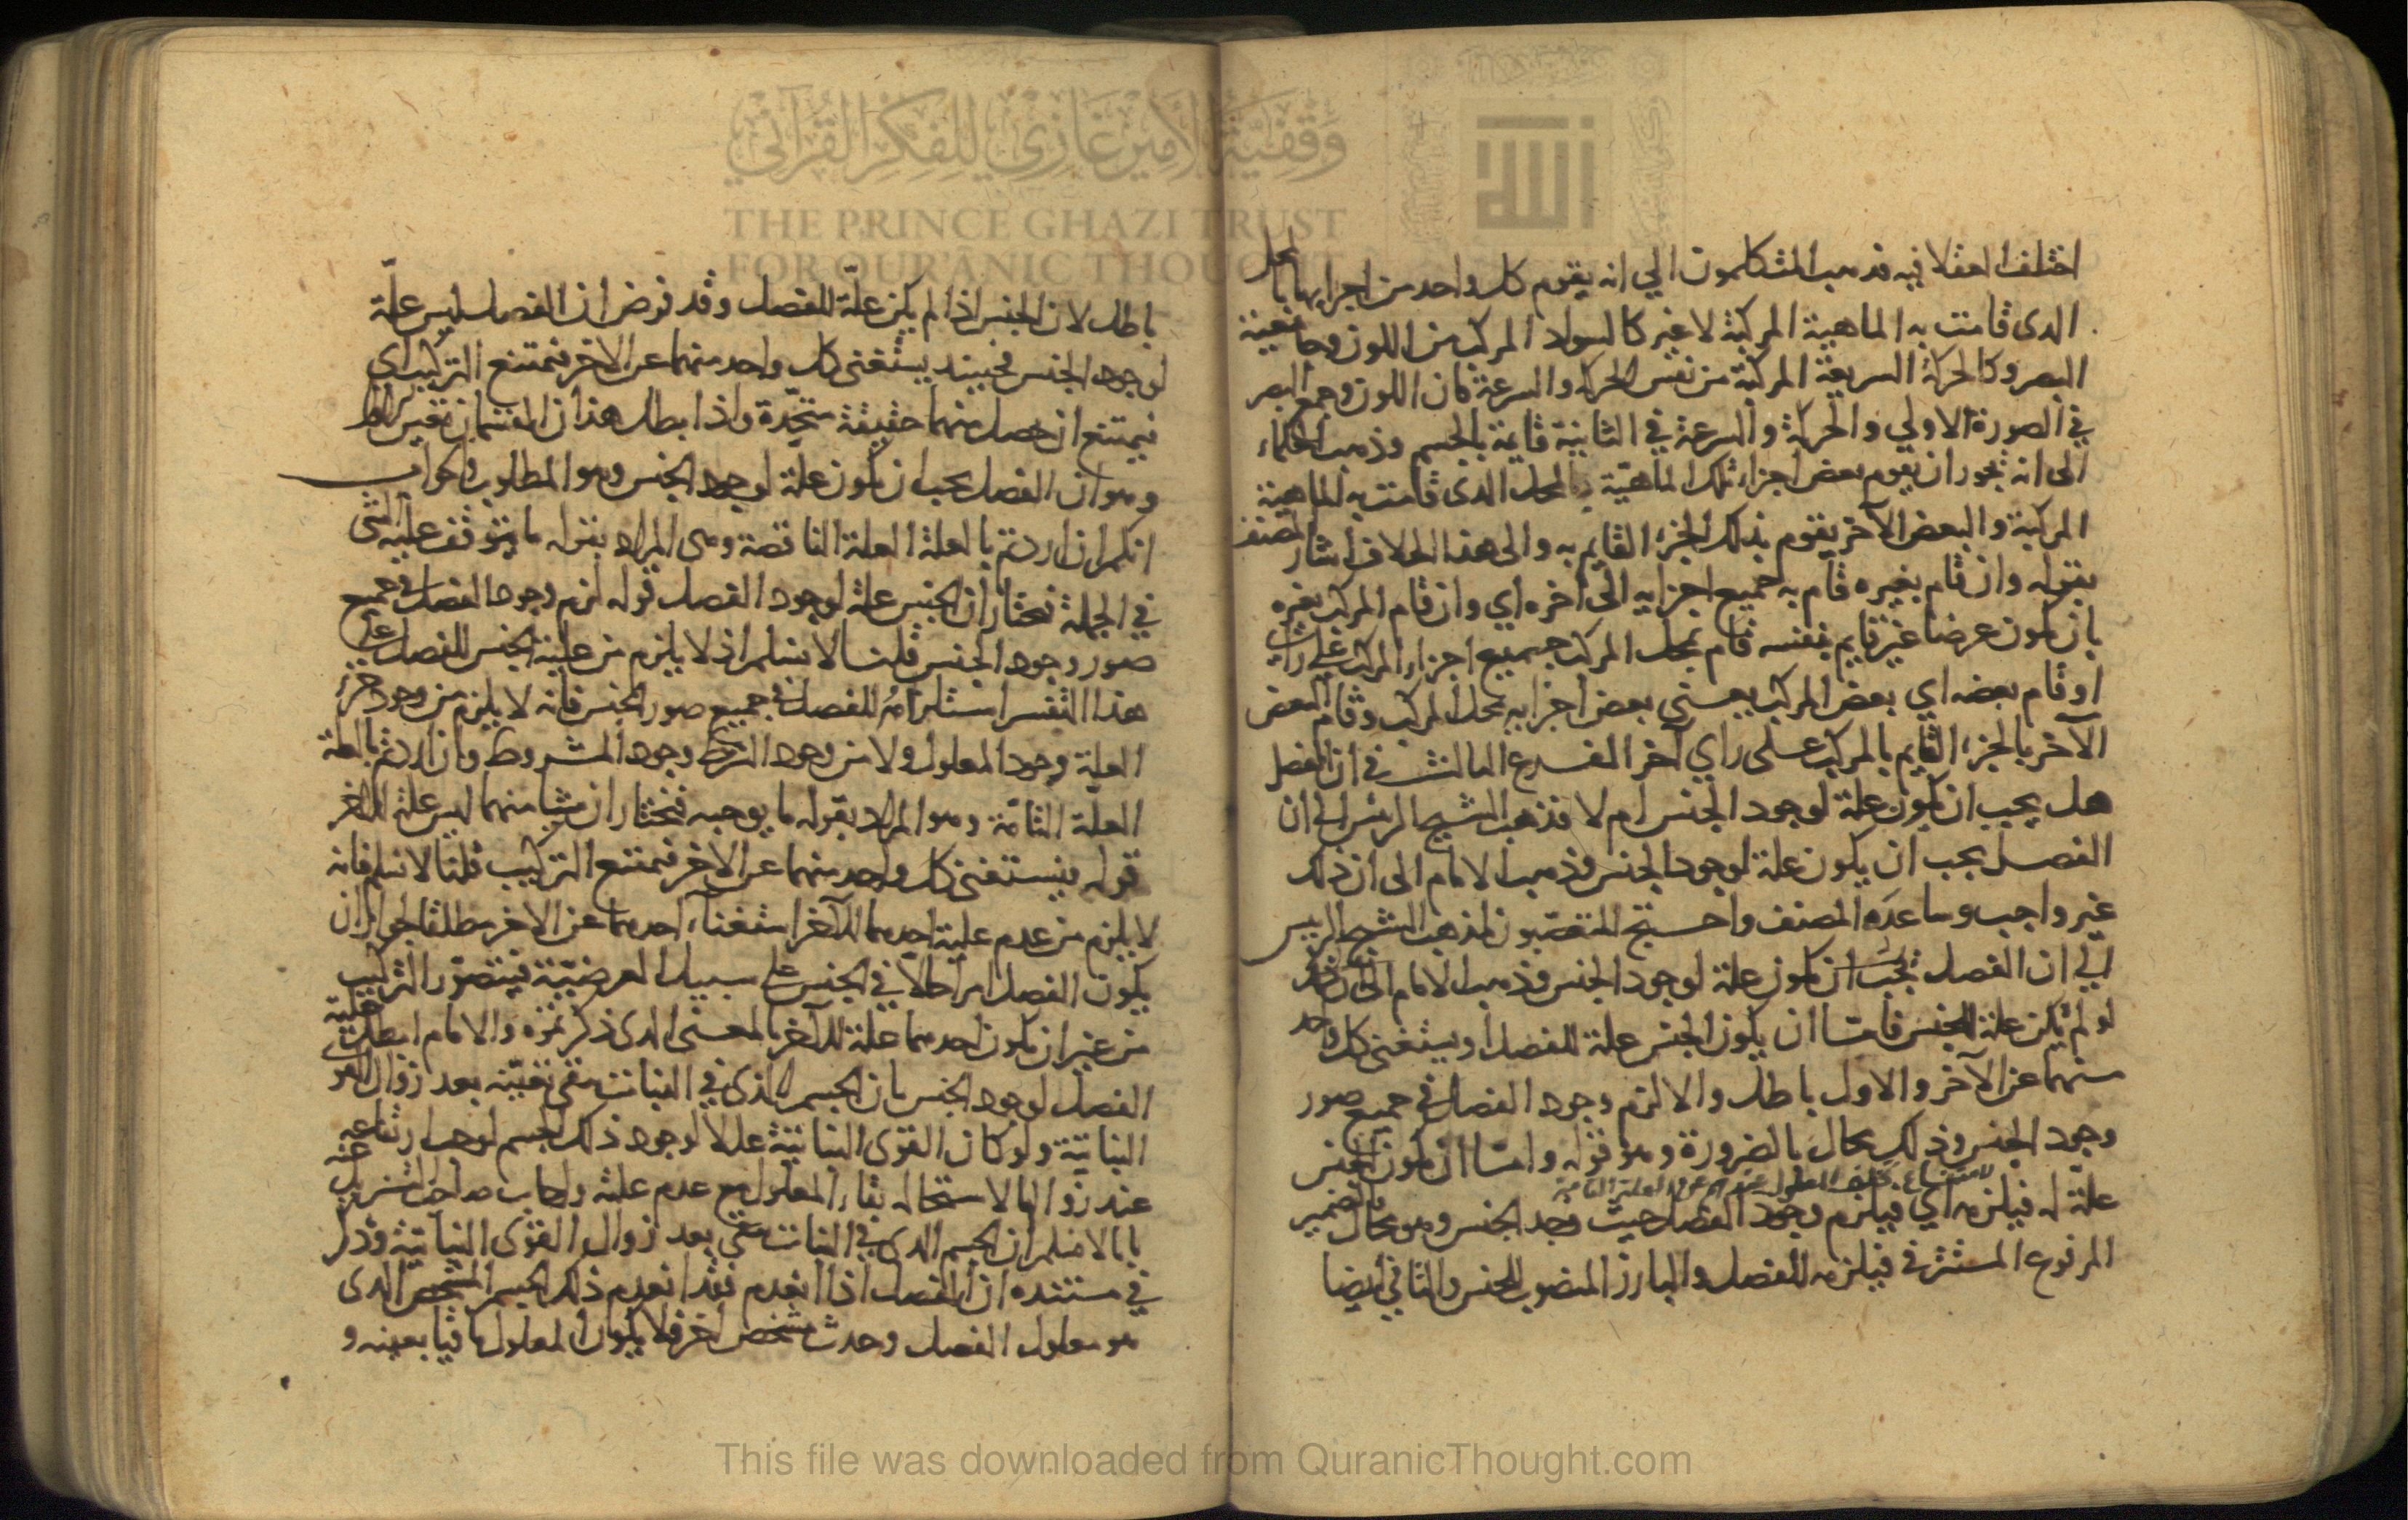 وقفية الأمير غازي للفكر القرآني
THE PRINCE GHAZI TRUST
FOR QUR'ĀNIC THOUGHT
اختلف العقلا فيه فذهب المتكلمون الي انه يقوم كل واحد من اجزايها بالمحل
الدى قامت به الماهية المركبة لا غير كالسواد المركب من اللون وقابضية
البصر وكالحركة السريعة المركبة من نفس الحركة والسرعة فان اللون وجمع البصر
في الصورة الاولي والحركة والسرعة في الثانية قايمة بالجسم وذهب الحكماء
الى انه يجوز ان يقوم بعض اجزاء تلك الماهية بالمحل الدى قامت به الماهية
المركبة والبعض الآخر يقوم بذلك الجزء القايم به والى هذا الخلاف اشار المصنف
بقوله وان قام بغيره قام به جميع اجزايه الى آخره اي وان قام المركب بغيره
بان يكون عرضا غير قايم بنفسه قام بمحل المركب جميع اجزاء المركب على راي
او قام بعضه اي بعض المركب يعنى بعض اجزايه بمحل المركب وقام البعض
الآخر بالجزء القايم بالمركب على راي آخر الفرع الثالث في ان الفصل
هل يجب ان يكون علة لوجود الجنس ام لا فذهب الشيخ الرئيس الى ان
الفصل يجب ان يكون علة لوجود الجنس وذهب الامام الى ان ذلك
غير واجب وساعده المصنف واحتج المتعصبون لمذهب الشيخ الرييس
الي ان الفصل يجب ان يكون علة لوجود الجنس وذهب الامام الى ان ذلك
لو لم يكن علة للجنس فامّا ان يكون الجنس علة للفصل او يستغنى كل واحد
منهما عن الآخر والاول باطل والا لزم وجود الفصل في جميع صور
وجود الجنس وذلك محال بالضرورة وهو قوله وامّا ان يكون الجنس
لامتناع تخلف المعلول عن العلة التامة
علّة له فيلزمه اي فيلزم وجود الفصل حيث وجد الجنس وهو محال فالضمير
المرفوع المستتر في فيلزمه للفصل والبارز المنصوب للجنس والثاني ايضا
باطل لان الجنس اذا لم يكن علّة للفصل وقد فرض ان الفصل ليس علّة
لوجود الجنس فحينيد يستغنى كل واحد منهما عن الاخر فيمتنع التركيب اي
فيمتنع ان حصل منهما حقيقة متحدة واذا بطل هذان القسمان تعين
وهو ان الفصل يجب ان يكون علة لوجود الجنس وهو المطلوب والجواب
انكم ان اردتم بالعلة العلة الناقصة وهى المراد بقوله ما يتوقف عليه الشى
في الجملة نختار ان الجنس علة لوجود الفصل قوله لزم وجود الفصل في جميع
صور وجود الجنس قلنا لا نسلم اذ لا يلزم من علية الجنس للفصل على
هذا التفسير استلزامه للفصل في جميع صور الجنس فانه لا يلزم من وجود جزء
العلة وجود المعلول ولا من وجود الشرط وجود المشروط وان اردتم بالعلة
العلة التامّة وهو المراد بقوله ما يوجبه فنختار ان شيا منهما ليس علة للاخر
قوله فيستغنى كل واحد منهما عن الاخر فيمتنع التركيب قلنا لا نسلم فانه
لا يلزم من عدم علية احدهما للآخر استغناء احدهما عن الاخر مطلقا لجواز ان
يكون الفصل امرا حالا في الجنس على سبيل العرضيّة فيتصوّر التركيب
من غير ان يكون احدهما علة للآخر بالمعنى الدى ذكرتموه والامام ابطل علية
الفصل لوجود الجنس بان الجسم الذى في النبات بقى بعينه بعد زوال القوى
النباتية ولو كان القوى النباتية عللا لوجود ذلك الجسم لوجب ارتفاعه
عند زوالها لاستحالة بقاء المعلول مع عدم علته واجاب صاحب التنزيل عنه
بانا لا نسلم ان الجسم الدى في النبات بقى بعد زوال القوى النباتية وذكر
في مستنده ان الفصل اذا انعدم فقد انعدم ذلك الجسم المشخص الدى
هو معلول الفصل وحدث مشخص آخر فلا يكون المعلول باقيا بعينه و
This file was downloaded from QuranicThought.com